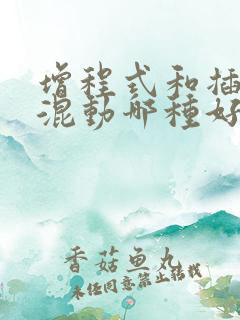 增程式和插
混動哪種好
香菇鱼丸
未经同意禁止转载